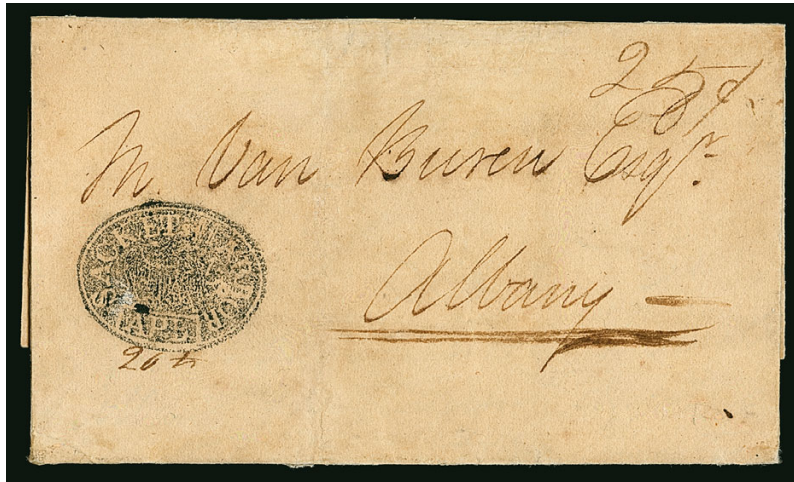 25¢
M. Van Buren Esqr.
Albany
SACKET HARBOR
26th